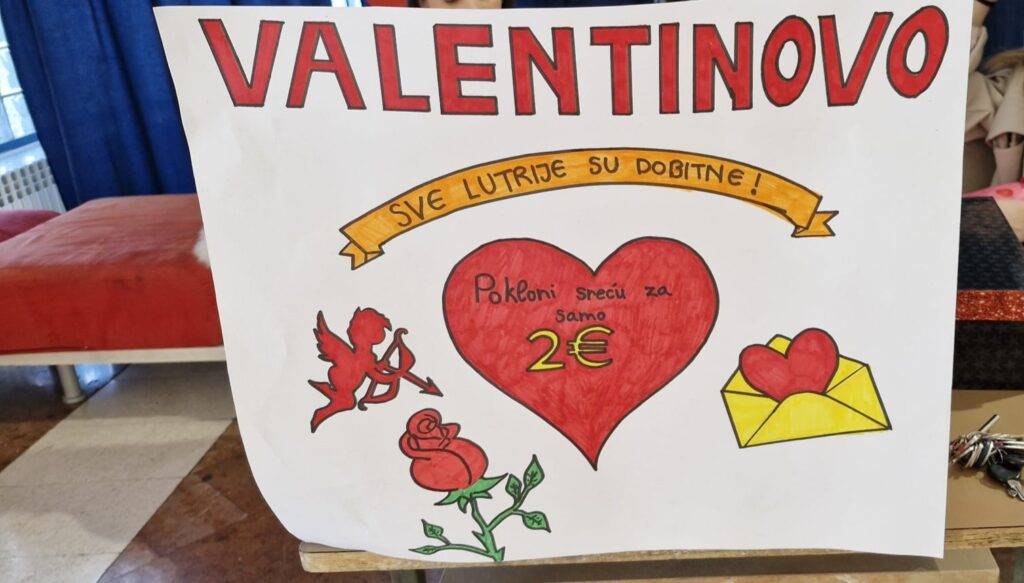 VALENTINOVO
SVE LUTRIJE SU DOBITNE!
Pokloni sreću za
samo
2€